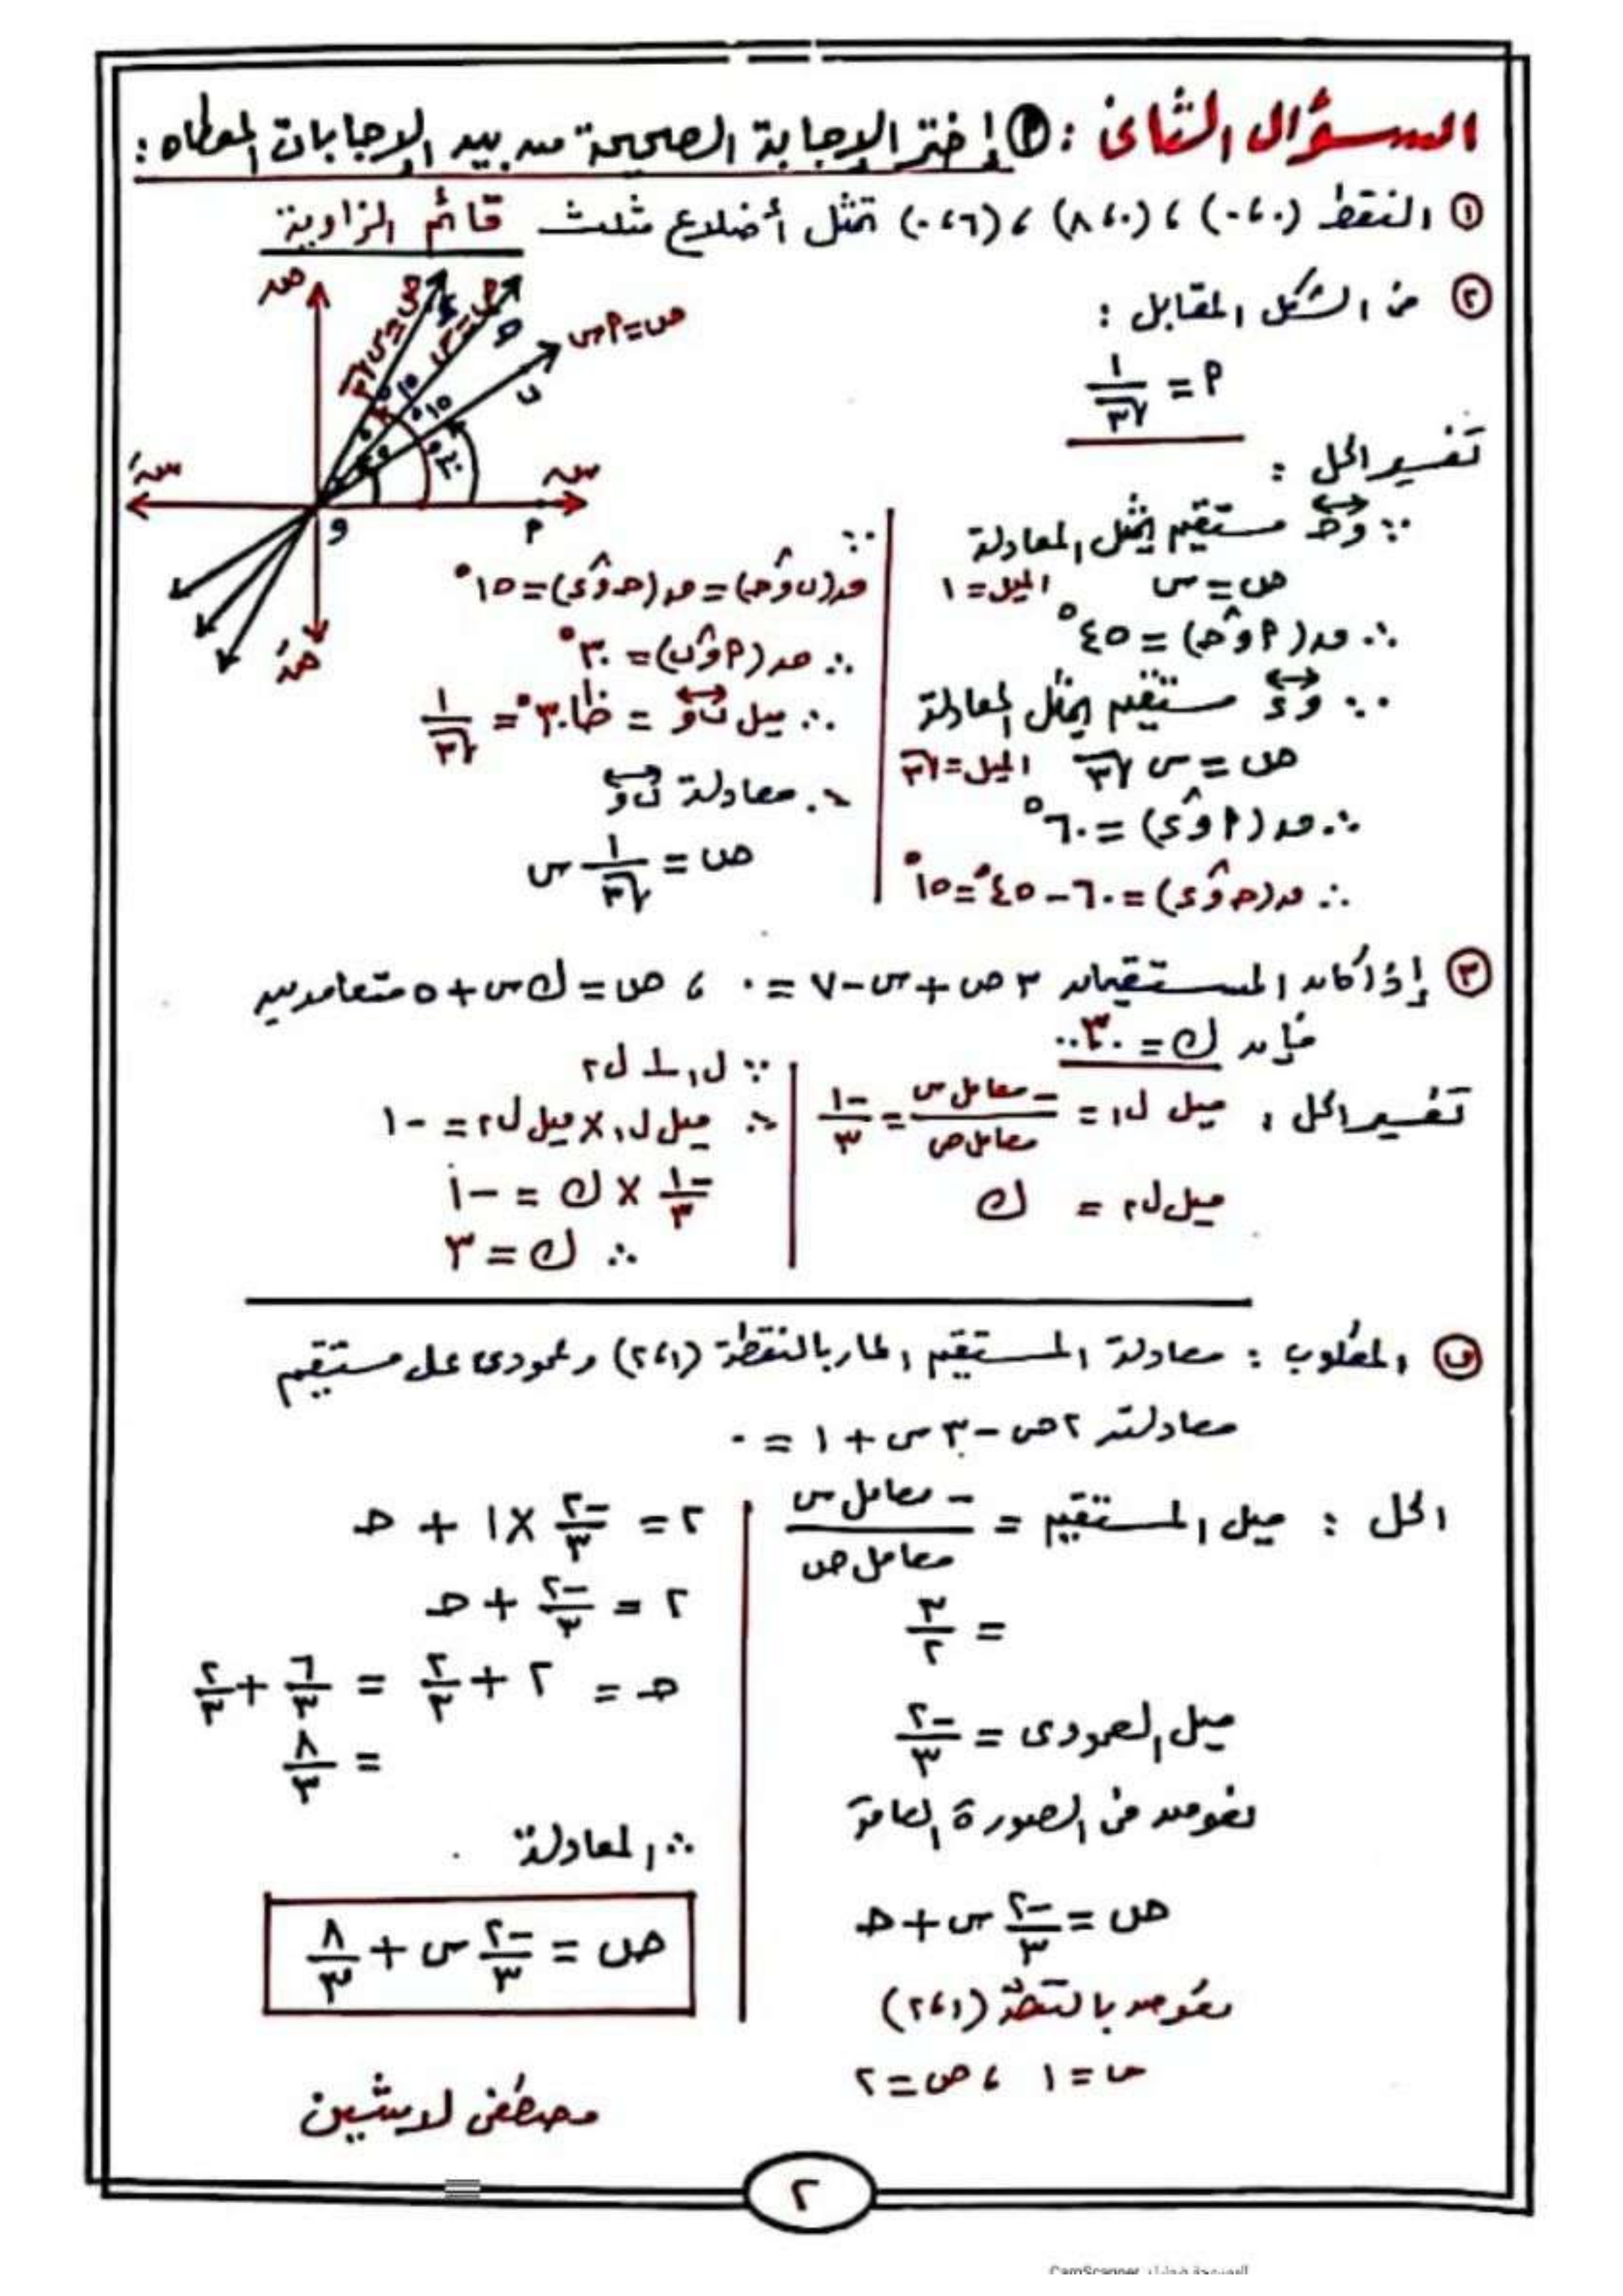 السؤال الثانى : (أ) إختر الإجابة الصحيحة من بين الإجابات المعطاه :
① النقط (٠،٠) ، (٠،٨) ، (٦،٠) تمثل أضلاع مثلث قائم الزاوية
② من الشكل المقابل :
أ = ١/√٣
ص
ص = √٣ س
ص = س
ص = أ س
ء
حـ
ب
١٥°
١٥°
٣٠°
٤٥
٦٠
سَ
س
و
أ
صَ
تفسير الحل :
∵ وحـ مستقيم يمثل المعادلة
ص = س الميل = ١
∴ ق(أ و حـ) = ٤٥°
∵ وء مستقيم يمثل المعادلة
ص = س √٣ الميل = √٣
∴ ق(أ و ء) = ٦٠°
∴ ق(حـ و ء) = ٦٠ - ٤٥° = ١٥°
∵
ق(ب و حـ) = ق(حـ و ء) = ١٥°
∴ ق(أ و ب) = ٣٠°
∴ ميل ب و = ظا ٣٠° = ١/√٣
∴ معادلة ب و
ص = ١/√٣ س
③ إذا كان المستقيمان ٣ ص + س - ٧ = ٠ ، ص = ك س + ٥ متعامدين
فإن ك = ٣
تفسير الحل : ميل ل١ = - معامل س/معامل ص = -١/٣
ميل ل٢ = ك
∵ ل١ ⊥ ل٢
∴ ميل ل١ × ميل ل٢ = -١
-١/٣ × ك = -١
∴ ك = ٣
(ب) المطلوب : معادلة المستقيم المار بالنقطة (١،٢) وعمودى على مستقيم
معادلته ٢ص - ٣س + ١ = ٠
الحل : ميل المستقيم = - معامل س/معامل ص
= ٣/٢
ميل العمودى = -٢/٣
نعوض فى الصورة العامة
ص = -٢/٣ س + حـ
نعوض بالنقطة (١،٢)
س = ١ ، ص = ٢
٢ = -٢/٣ × ١ + حـ
٢ = -٢/٣ + حـ
حـ = ٢ + ٢/٣ = ٦/٣ + ٢/٣
= ٨/٣
∴ المعادلة
ص = -٢/٣ س + ٨/٣
مصطفى لاشين
٢
CamScanner